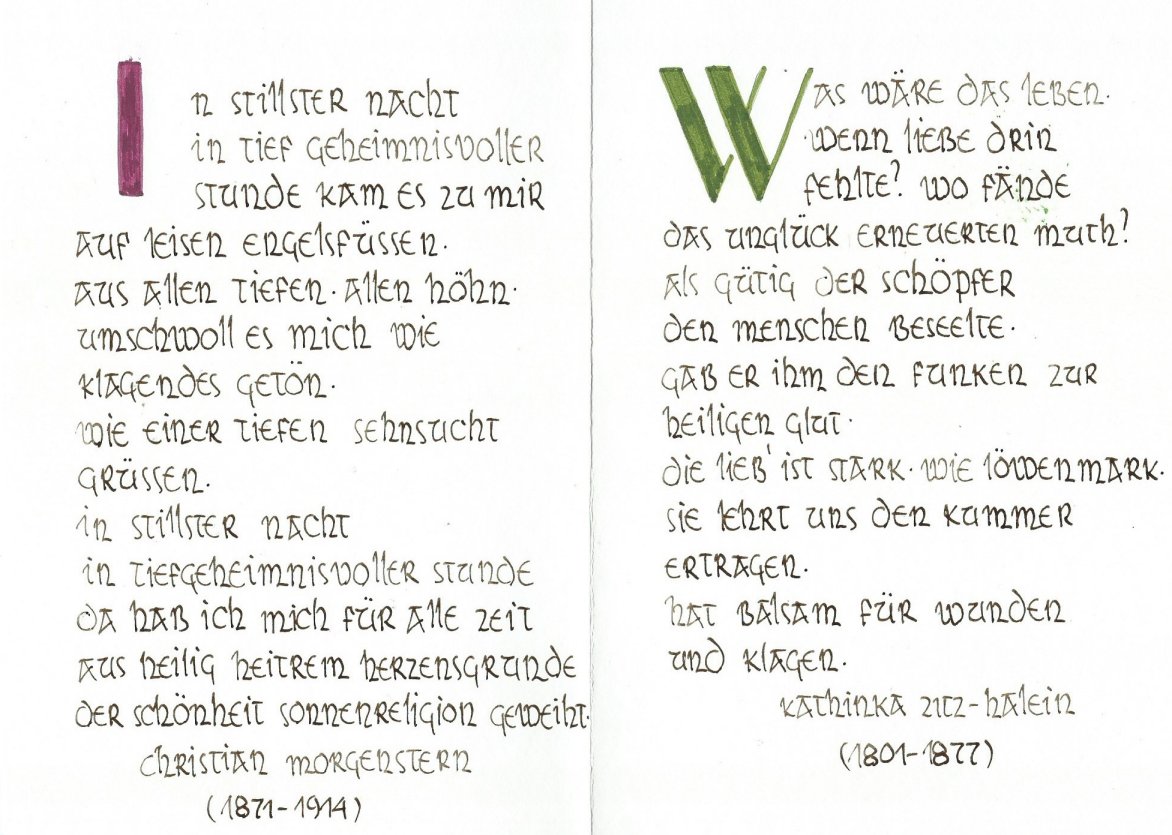 In stillster nacht
in tief geheimnisvoller
stunde kam es zu mir
auf leisen engelsfüssen.
aus allen tiefen. allen höhn.
umschwoll es mich wie
klagendes getön.
wie einer tiefen sehnsucht
grüssen.
in stillster nacht
in tiefgeheimnisvoller stunde
da hab ich mich für alle zeit
aus heilig heitrem herzensgrunde
der schönheit sonnenreligion geweiht.
christian morgenstern
(1871-1914)
Was wäre das leben.
wenn liebe drin
fehlte? wo fände
das unglück erneuerten muth?
als gütig der schöpfer
den menschen beseelte.
gab er ihm den funken zur
heiligen glut.
die lieb' ist stark. wie löwenmark.
sie lehrt uns den kummer
ertragen.
hat balsam für wunden
und klagen.
kathinka zitz-halein
(1801-1877)